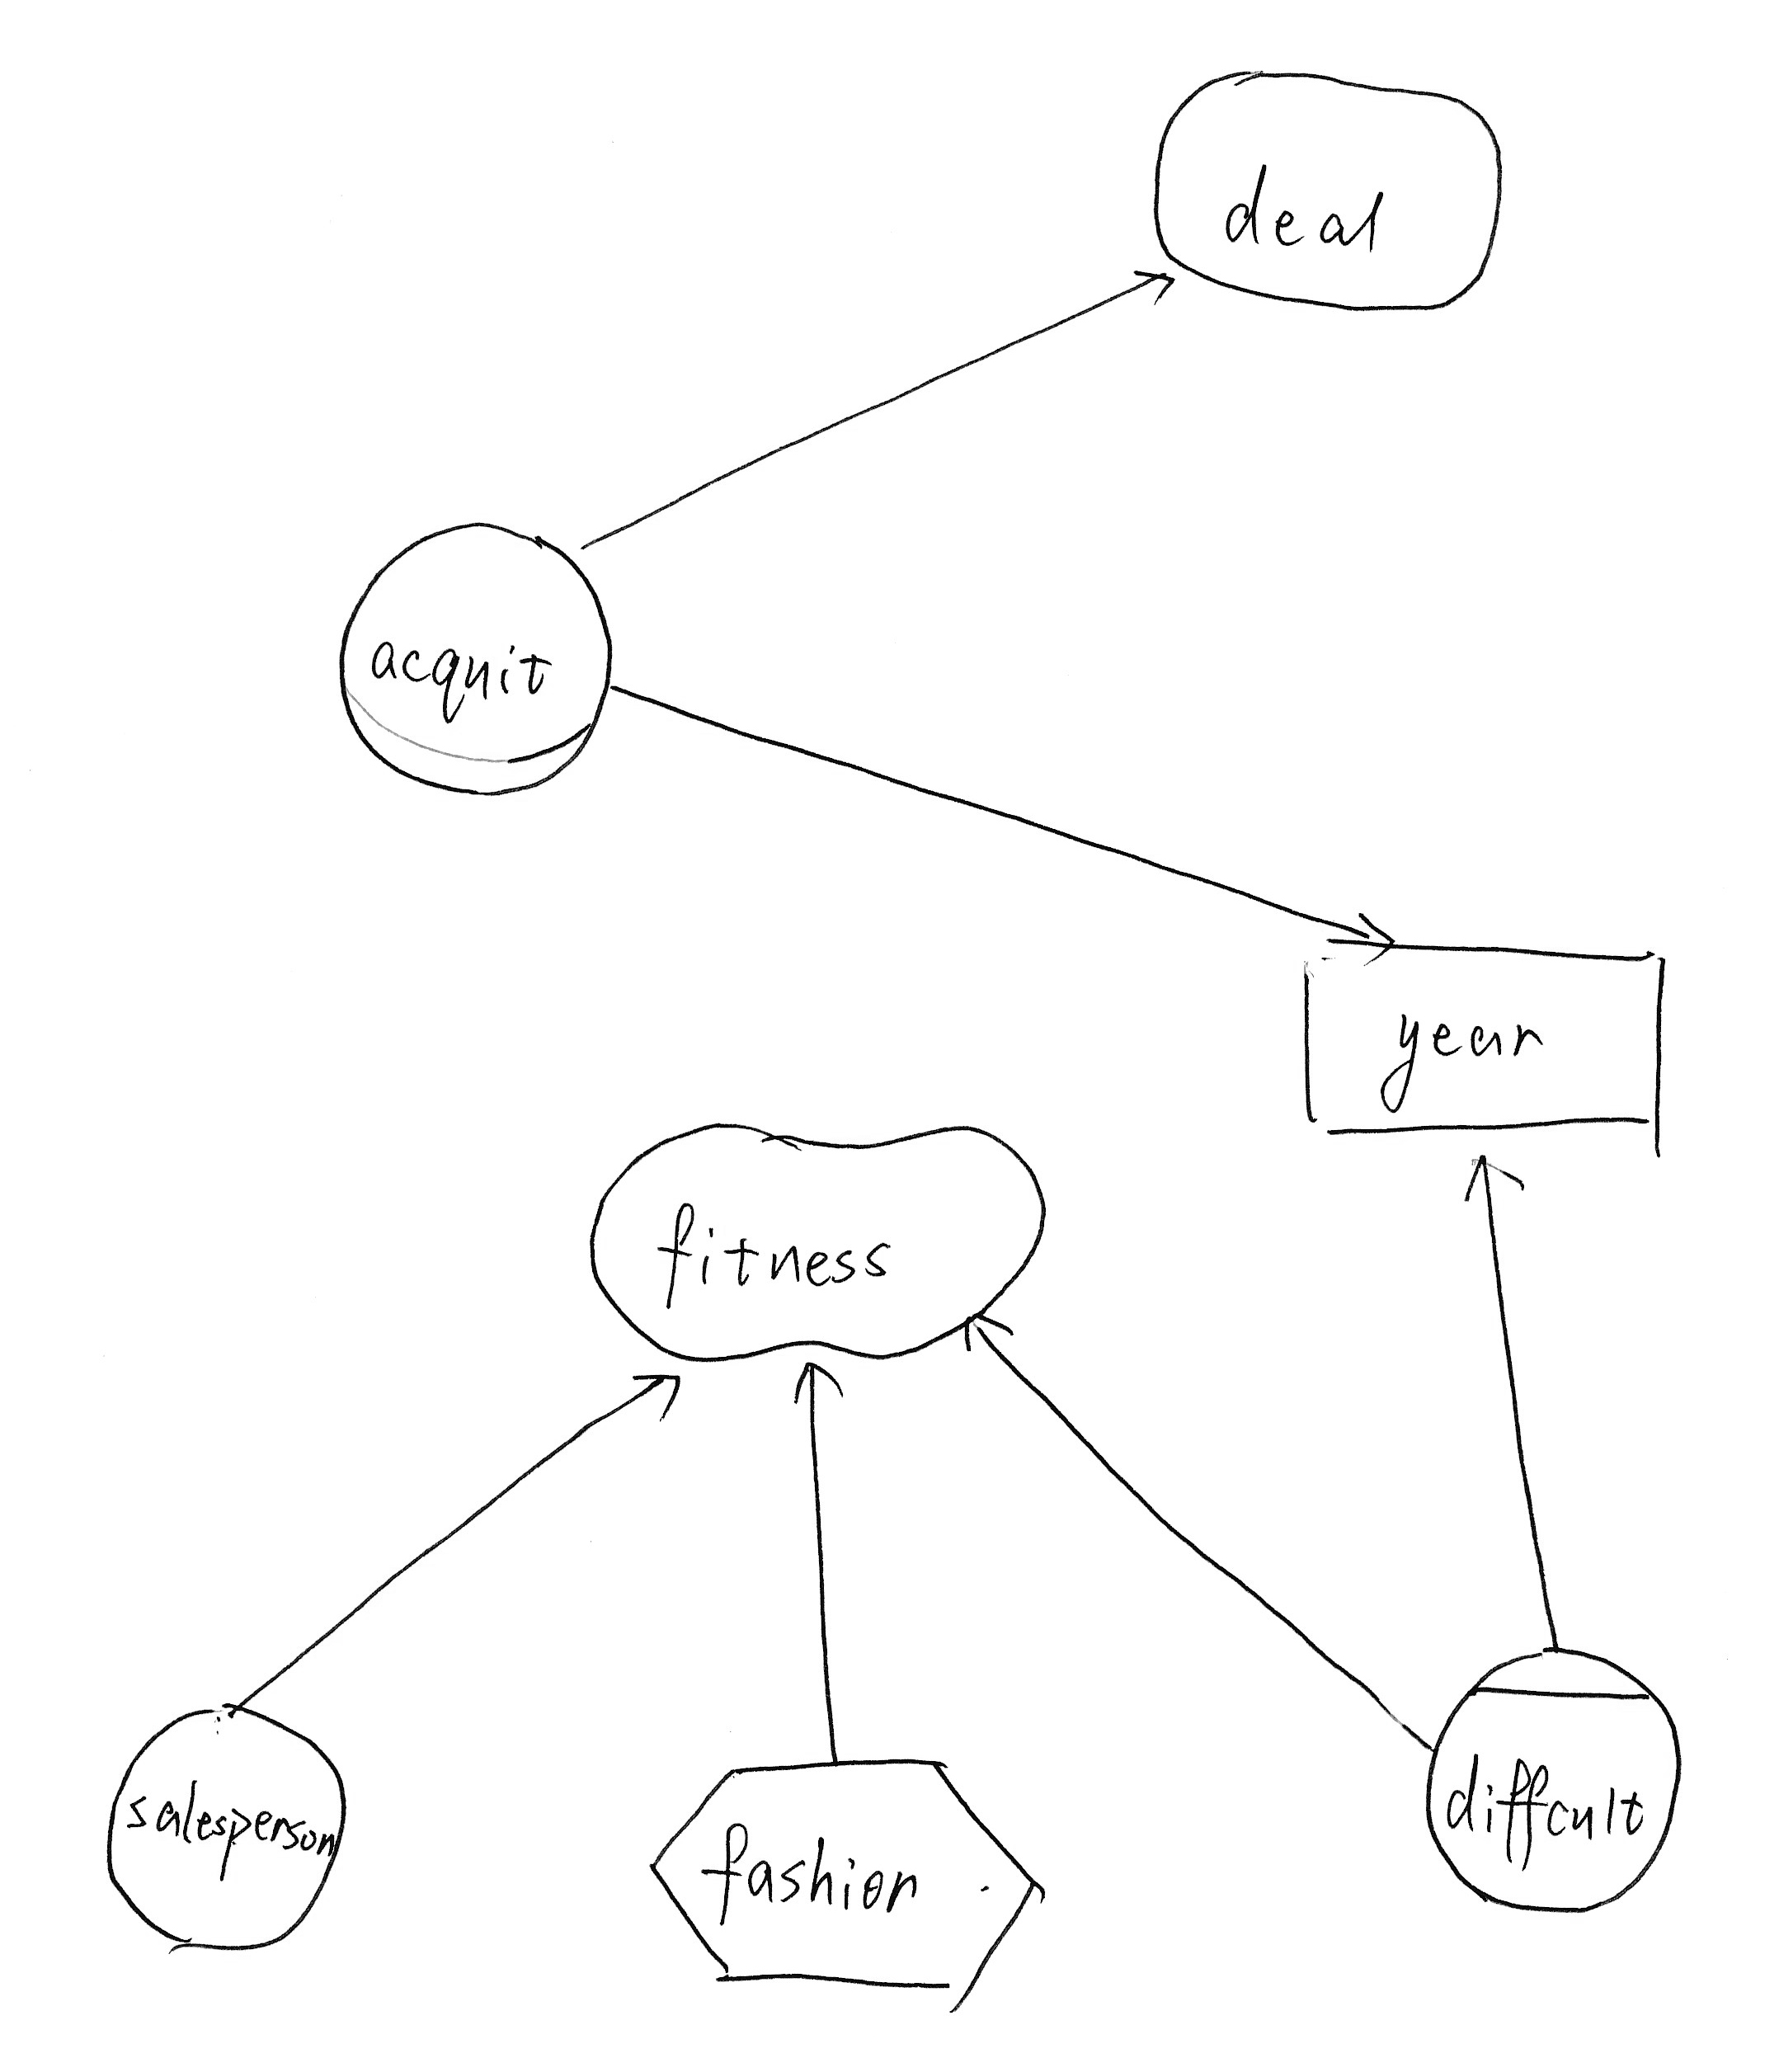 deal
acquit
year
fitness
salesperson
fashion
diffcult